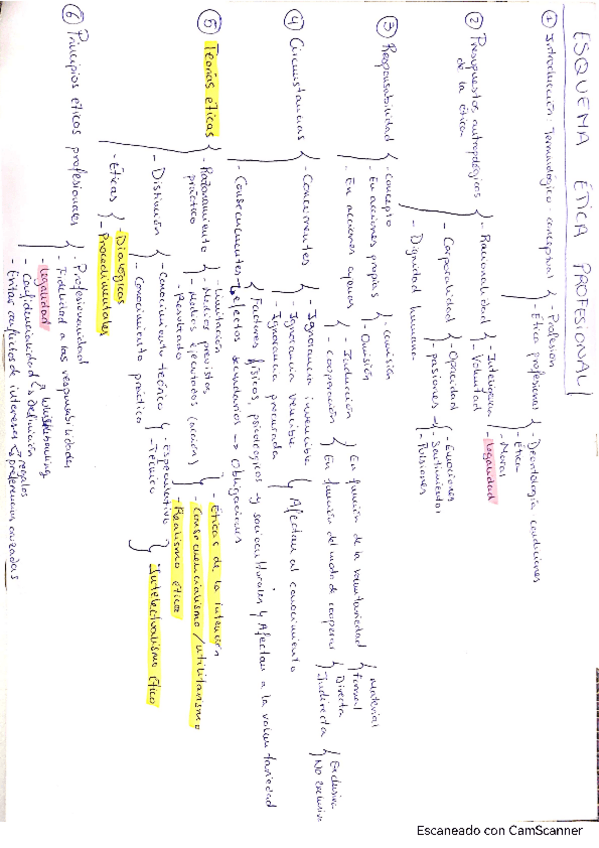 ESQUEMA ÉTICA PROFESIONAL
① Introducción: Terminológico-conceptual { - Profesión
- Ética profesional { - Deontología condiciones
- Ética
- Moral
- legalidad
② Presupuestos antropológicos de la ética { - Racionalidad { - Inteligencia
- Voluntad
- Corporalidad { - Opacidad
- pasiones { - Emociones
- Sentimientos
- Pasiones
- Dignidad humana
③ Responsabilidad { - Concepto
- En acciones propias { - comisión
- Omisión
- En acciones ajenas { - Inducción
- cooperación { En función de la voluntariedad { material
formal
En función del modo de cooperar { Directa
Indirecta { Exclusiva
No exclusiva
④ Circunstancias { - Concurrentes { - Ignorancia invencible
- Ignorancia vencible
- Ignorancia procurada } Afectan al conocimiento
Factores físicos, psicológicos y socioculturales } Afectan a la voluntariedad
- Consecuentes → efectos secundarios → Obligaciones
⑤ Teorías éticas { - Razonamiento práctico { - Limitación
- Medios previstos
- Medios ejecutados (acción)
- Resultado
- Éticas de la intención
- Consecuencialismo / utilitarismo
- Realismo ético
- Distinción { - conocimiento teórico { - Especulativo
- Técnico
- Conocimiento práctico
} Intelectualismo ético
- Éticas { - Dialógicas
- Procedimentales
⑥ Principios éticos profesionales { - Profesionalidad
- Fidelidad a las responsabilidades
- legalidad
- Confidencialidad { Whistleblowing
Definición
- Evitar conflictos de intereses { regalos
preferencias cruzadas
Escaneado con CamScanner